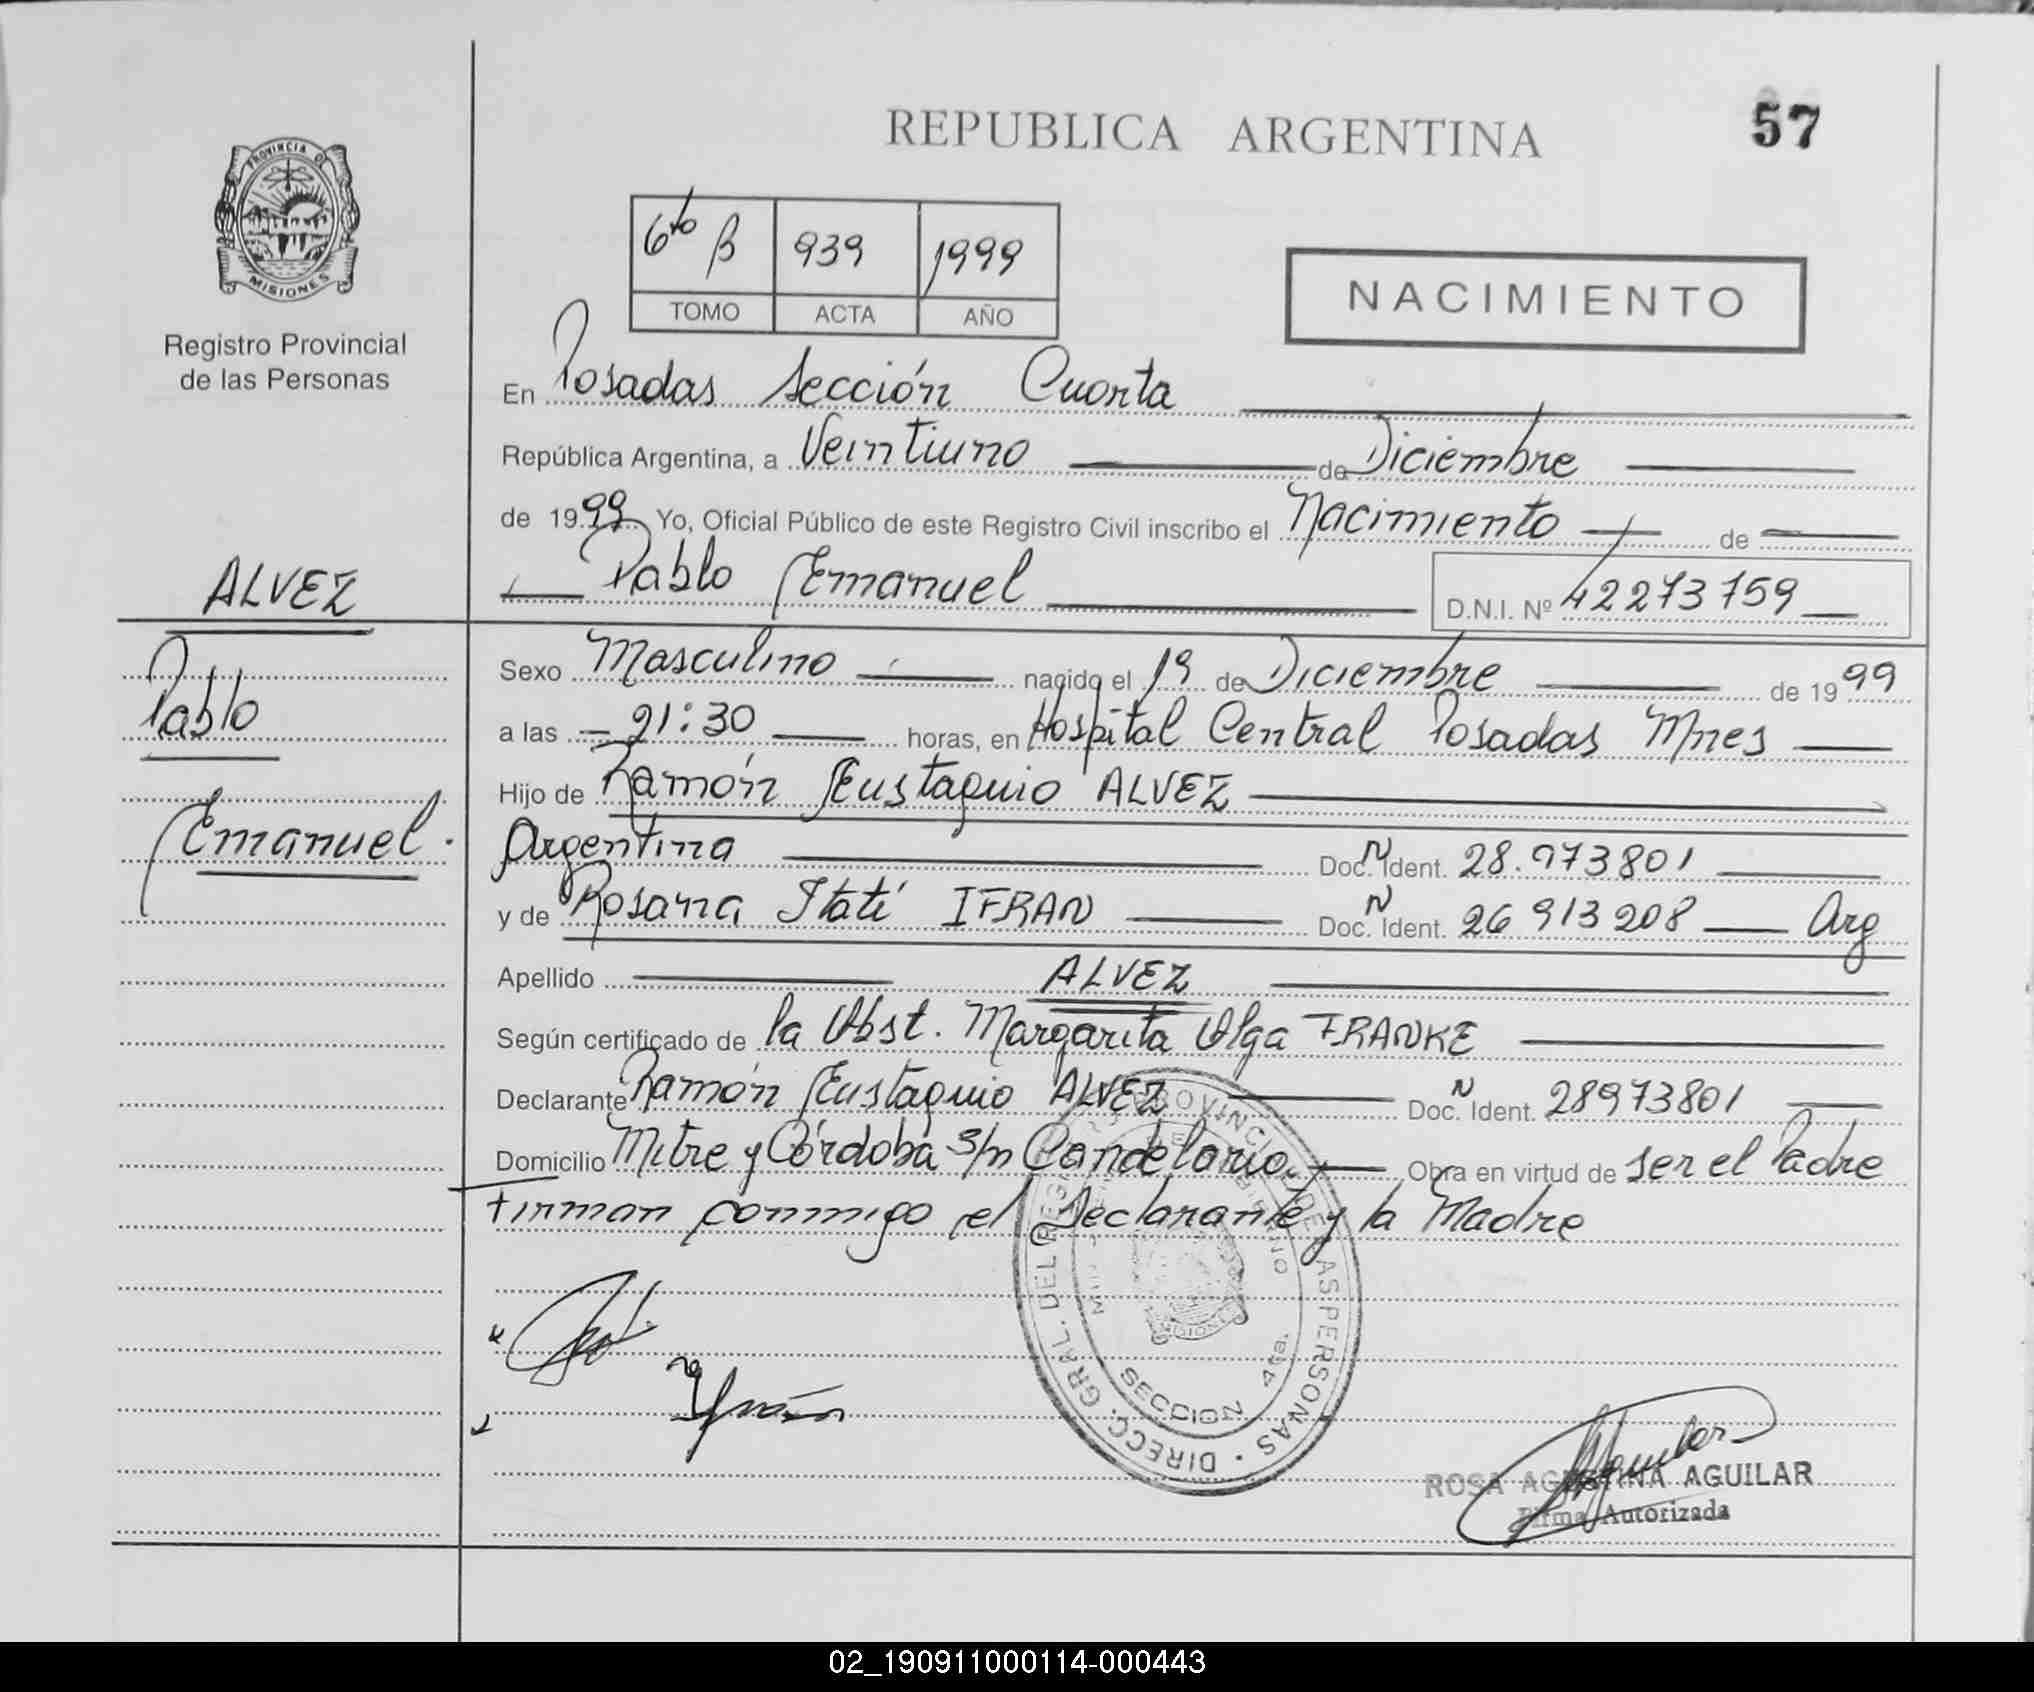 REPUBLICA ARGENTINA
57
PROVINCIA D
MISIONES
Registro Provincial
de las Personas
6to B 939 1999
TOMO ACTA AÑO
NACIMIENTO
En Posadas Sección Cuarta
República Argentina, a Veintiuno de Diciembre
de 1999 Yo, Oficial Público de este Registro Civil inscribo el Nacimiento de
Pablo Emanuel D.N.I. Nº 42273759
ALVEZ
Pablo
Emanuel.
Sexo Masculino nacido el 19 de Diciembre de 1999
a las 21:30 horas, en Hospital Central Posadas Mnes
Hijo de Ramón Eustaquio ALVEZ
Argentina Doc. N Ident. 28.973801
y de Rosana Itatí IFRAN Doc. N Ident. 26913208 Arg
Apellido ALVEZ
Según certificado de la Obst. Margarita Olga FRANKE
Declarante Ramón Eustaquio ALVEZ Doc. N Ident. 28973801
Domicilio Mitre y Córdoba s/n Candelaria Obra en virtud de ser el Padre
Firman conmigo el Declarante y la Madre
DIRECC. GRAL. DEL REG. PROVINCIAL DE LAS PERSONAS
SECCION 4ta.
ROSA AGUSTINA AGUILAR
Firma Autorizada
02_190911000114-000443